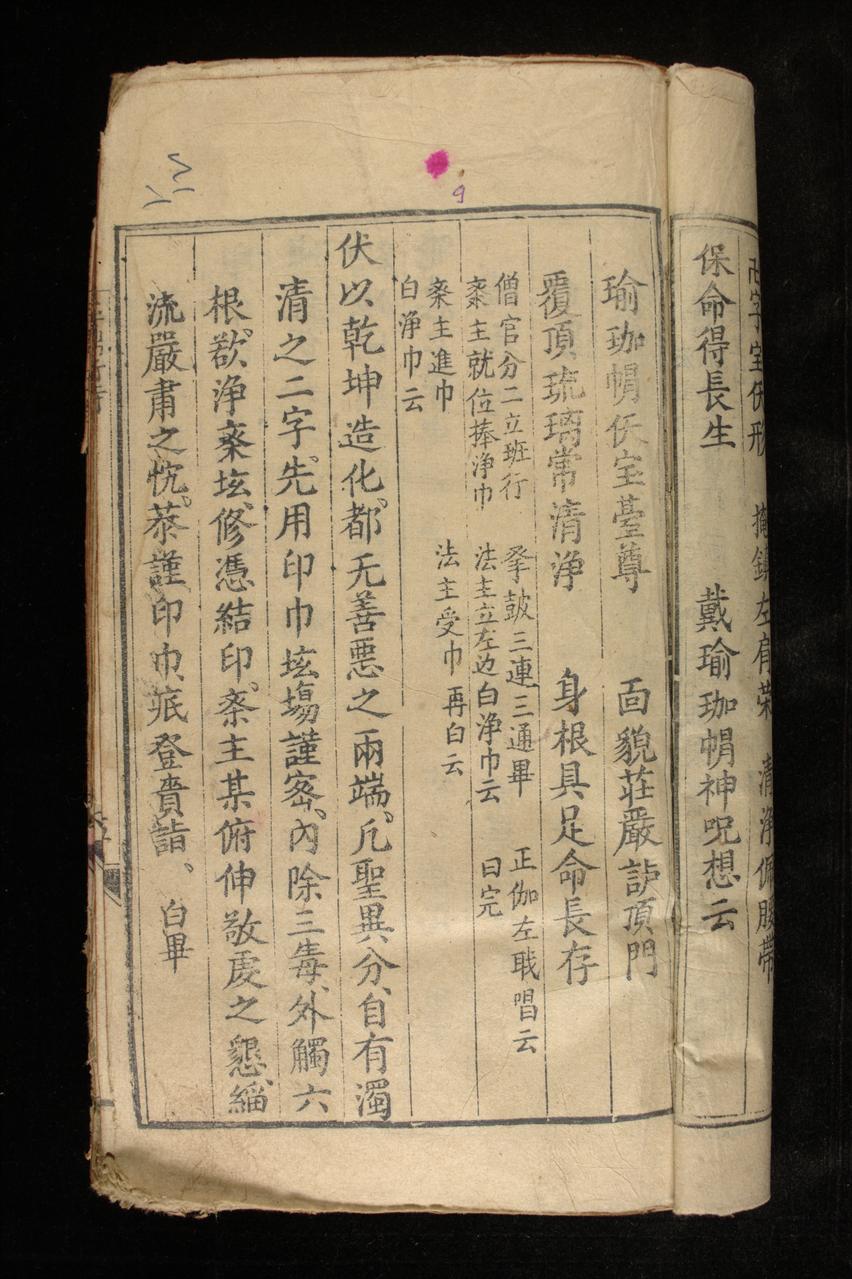 卍字宝伕形　掩鎮左肩荣　清浄佩腰帶
保命得長生　戴瑜珈㡓神呪想云
瑜珈㡓伕宝臺尊　靣貌荘嚴護頂門
覆頂琉璃常清浄　身根具足命長存
僧官分二立班行　孥鼓三連三通畢　正伽左戢唱云
桼主就位捧浄巾　法主立左边白浄巾云　曰完
桼主進巾　法主受巾再白云
白浄巾云
伏以乾坤造化、都无善惡之兩端、凢聖異分、自有濁
清之二字、先用印巾垓塲謹宻、內除三毒、外觸六
根、欲浄桼垓、修憑結印、桼主某俯伸敬虔之懇、緇
流嚴肅之忱、恭謹印巾、疷登賫詣、白畢
9